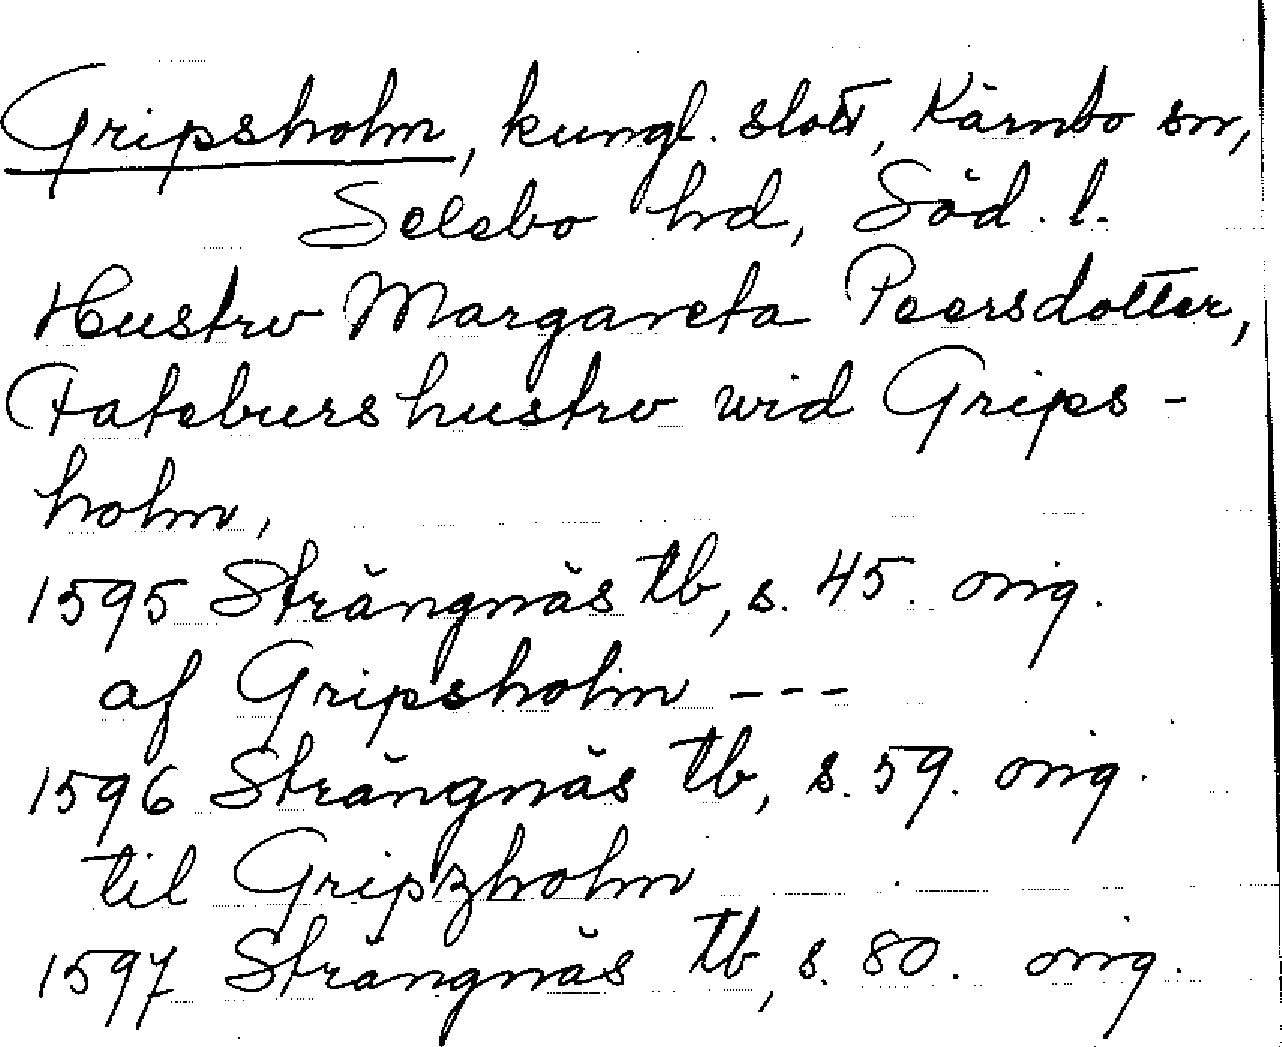 Gripsholm, kungl. slott, Kärnbo sn,
Selebo hd, Söd. l.
Hustrv Margareta Peersdotter,
Fatebwrs hustrv wid Grips-
holm,
1595 Strängnäs tb, s. 45. orig.
af Gripsholm ---
1596 Strängnäs tb, s. 59. orig.
til Gripzholm
1597 Strängnäs tb, s. 80. orig.